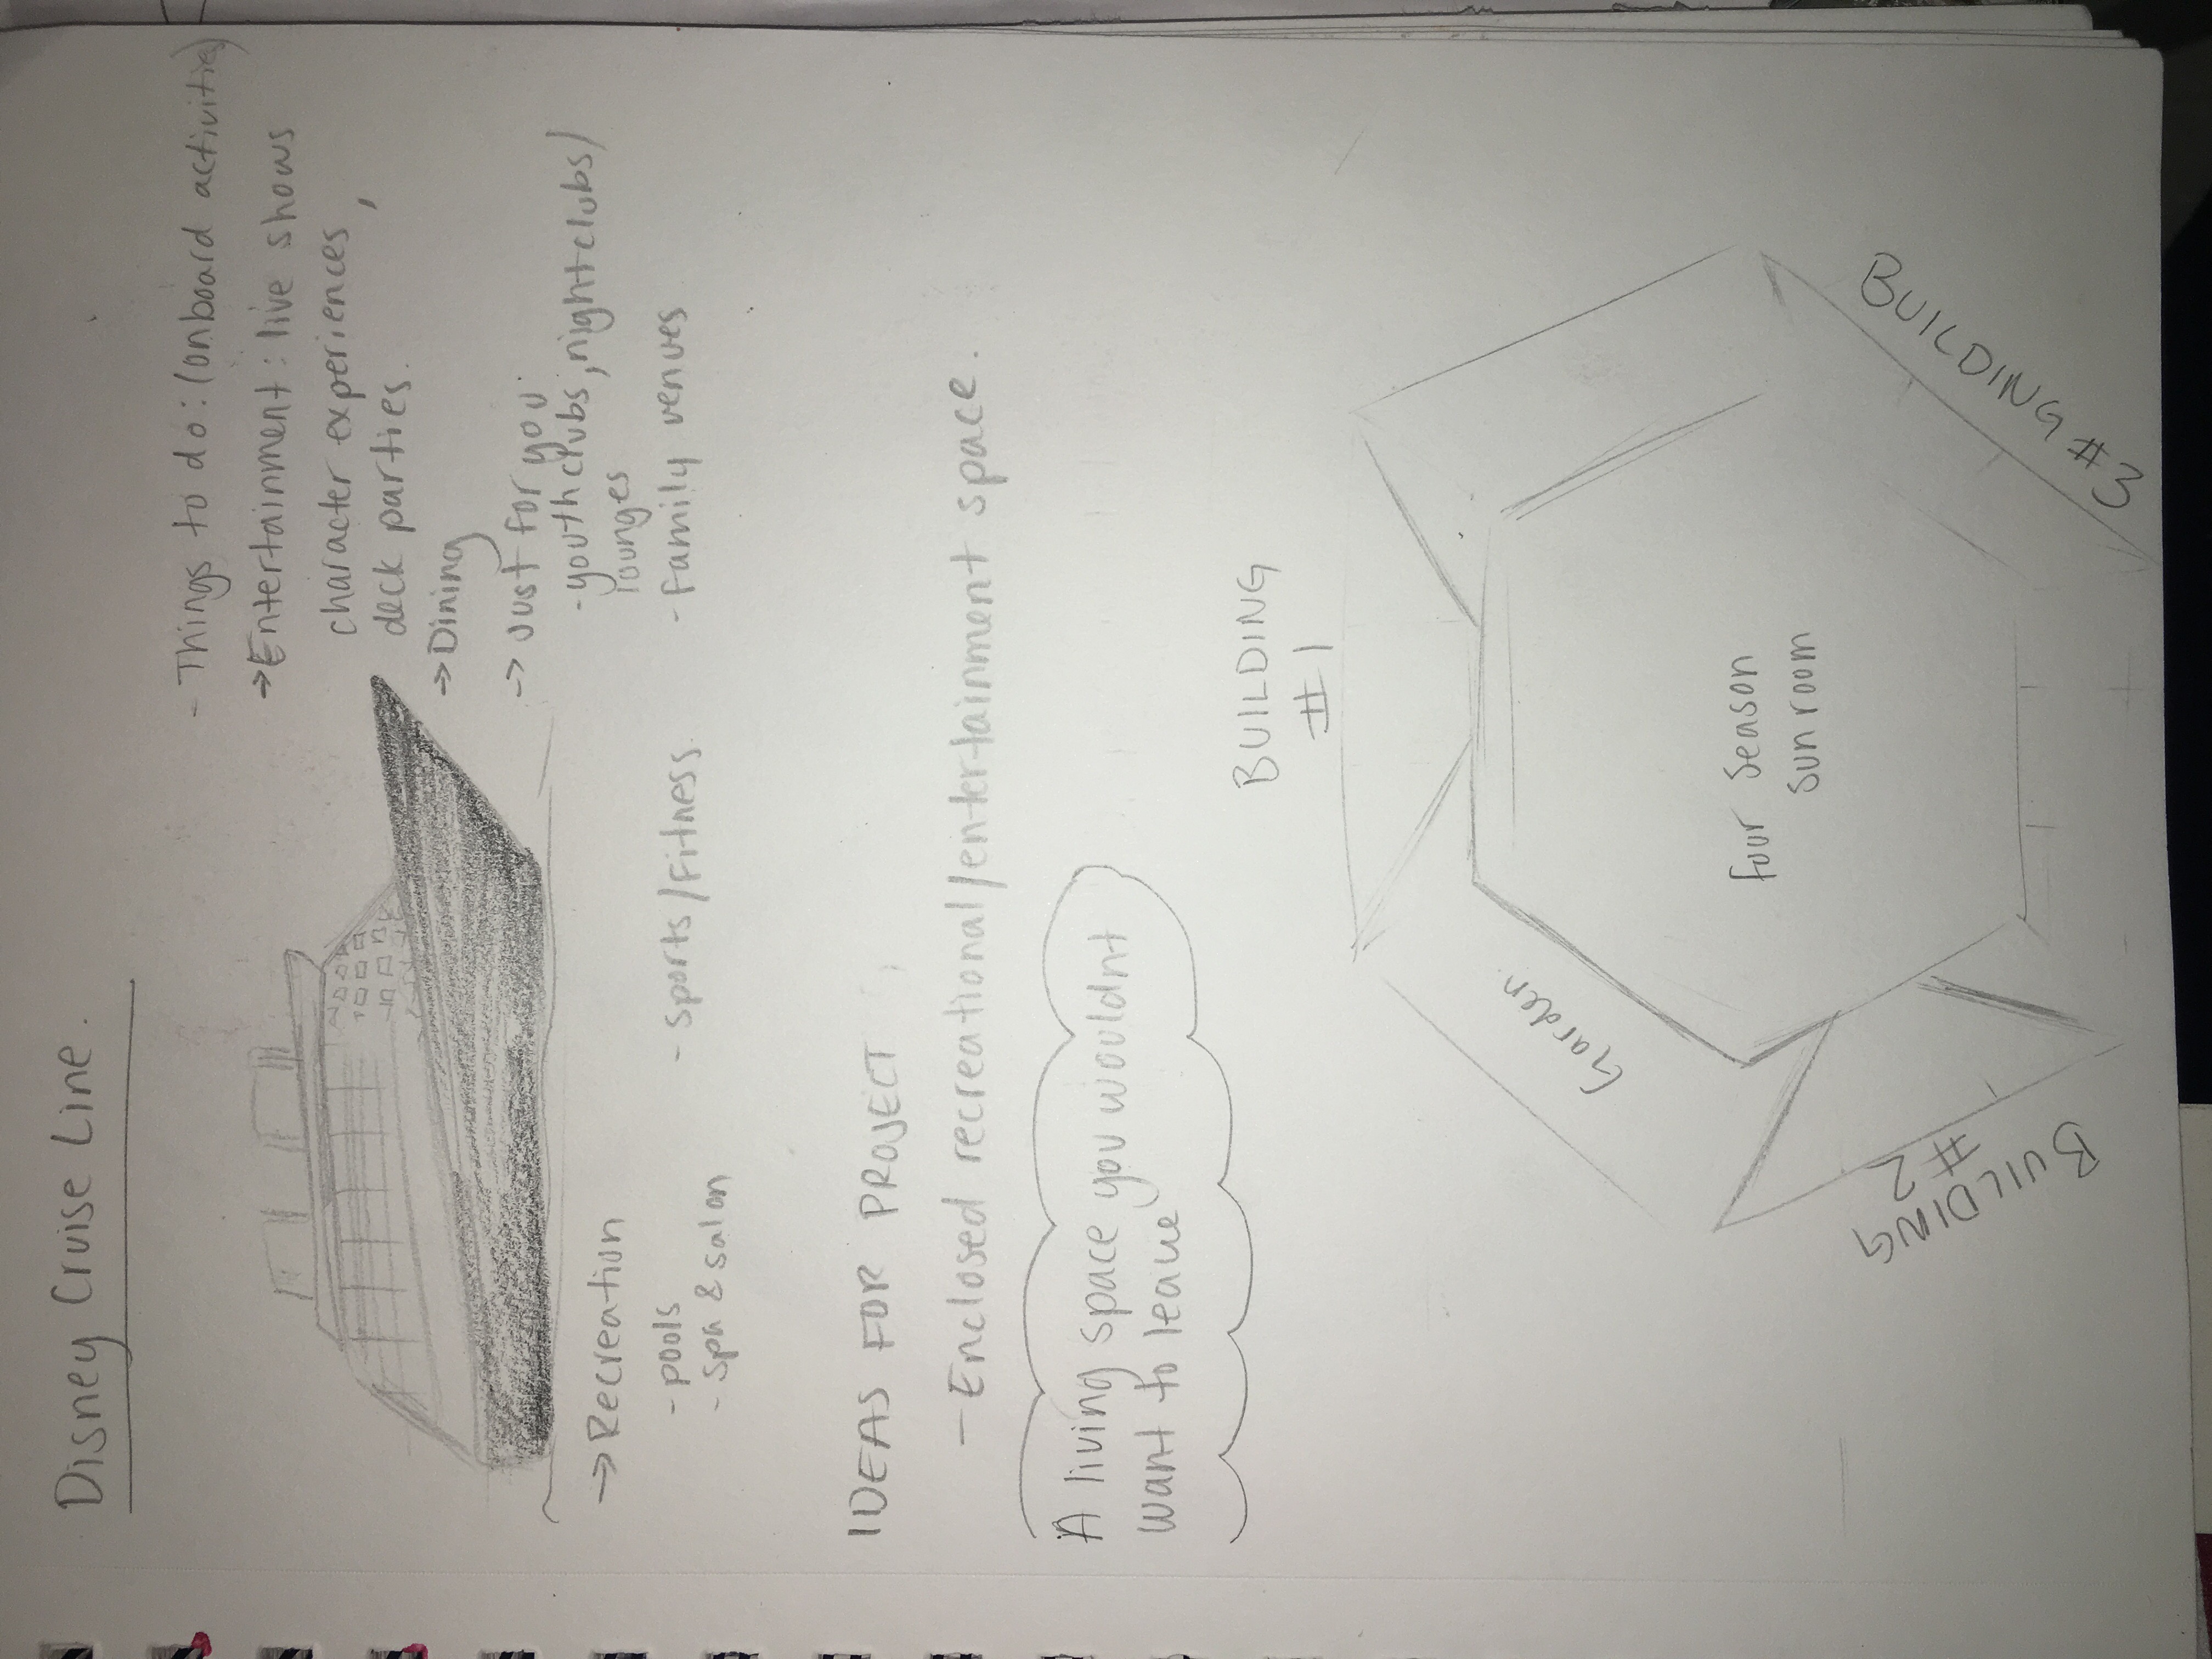 Disney Cruise Line.
- Things to do: (onboard activities)
→ Entertainment: live shows
character experiences,
deck parties.
→ Dining
→ Just for you
- youth clubs, nightclubs/
lounges
- family venues
→ Recreation
- pools
- spa & salon
- sports/fitness
IDEAS FOR PROJECT
- Enclosed recreational/entertainment space.
A living space you wouldnt
want to leave
BUILDING
#1
Garden
four season
sunroom
BUILDING #3
BUILDING
#2